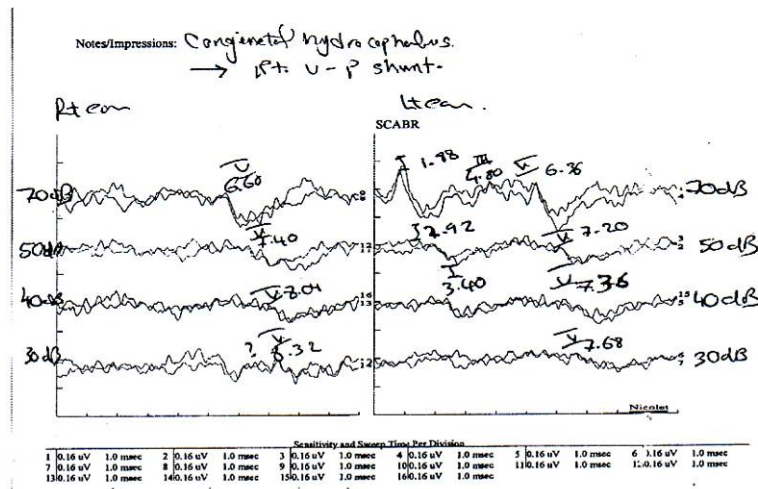 Notes/Impressions: Congenital hydrocephalus.
→ Pt. V-P shunt.
Rt ear
Lt ear.
SCABR
70dB
V
6.60
I
1.88
III
4.80
V
6.36
70dB
50dB
V
7.40
I 2.92
V
7.20
50dB
40dB
V 8.04
I
3.40
V
7.36
40dB
30dB
?
V
8.32
V
7.68
30dB
Nicolet
Sensitivity and Sweep Time Per Division
1 0.16 uV 1.0 msec 2 0.16 uV 1.0 msec 3 0.16 uV 1.0 msec 4 0.16 uV 1.0 msec 5 0.16 uV 1.0 msec 6 0.16 uV 1.0 msec
7 0.16 uV 1.0 msec 8 0.16 uV 1.0 msec 9 0.16 uV 1.0 msec 10 0.16 uV 1.0 msec 11 0.16 uV 1.0 msec 12 0.16 uV 1.0 msec
13 0.16 uV 1.0 msec 14 0.16 uV 1.0 msec 15 0.16 uV 1.0 msec 16 0.16 uV 1.0 msec